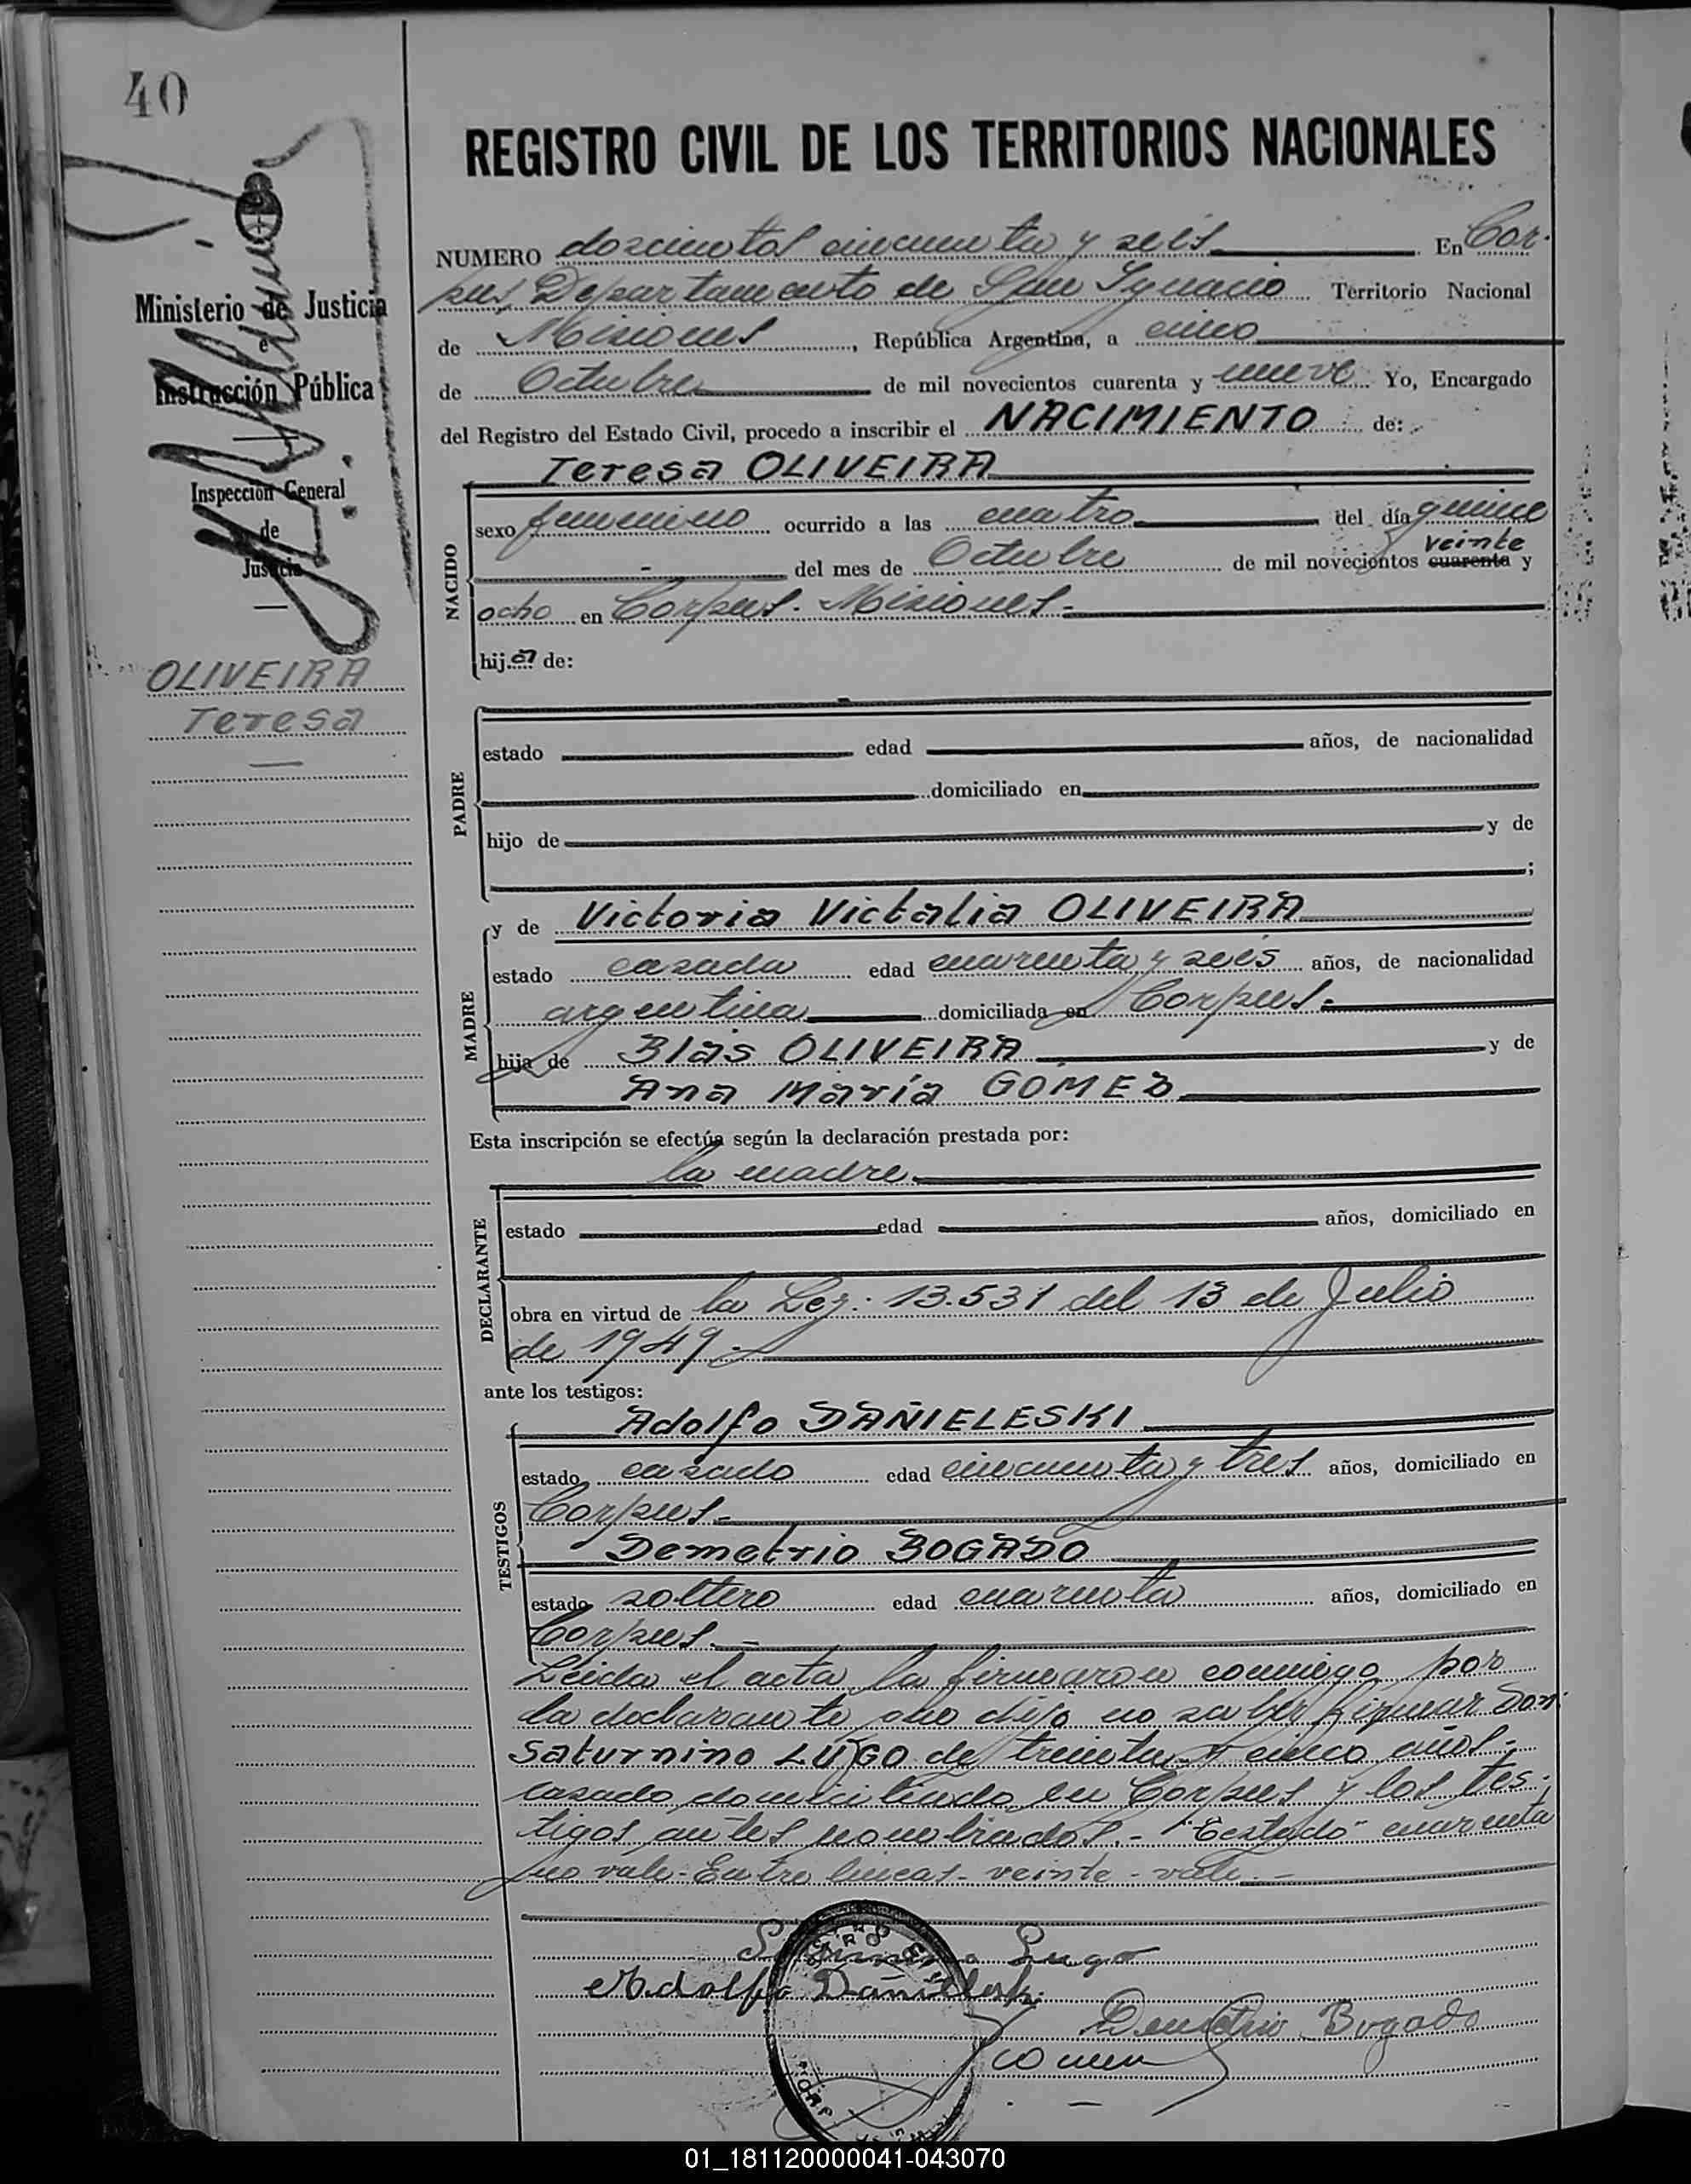 40
REGISTRO CIVIL DE LOS TERRITORIOS NACIONALES
NUMERO doscientos cincuenta y seis En Cor-
pus, Departamento de San Ignacio Territorio Nacional
de Misiones, República Argentina, a cinco
de Octubre de mil novecientos cuarenta y nueve Yo, Encargado
del Registro del Estado Civil, procedo a inscribir el NACIMIENTO de:
Teresa OLIVEIRA
Ministerio de Justicia
e
Instrucción Pública
Inspección General
de
Justicia
OLIVEIRA
Teresa
NACIDO
sexo femenino ocurrido a las cuatro del día quince
veinte
del mes de Octubre de mil novecientos cuarenta y
ocho en Corpus. Misiones.-
hija de:
PADRE
estado edad años, de nacionalidad
domiciliado en
hijo de y de
;
MADRE
y de Victoria Victalia OLIVEIRA
estado casada edad cuarenta y seis años, de nacionalidad
argentina domiciliada en Corpus.-
hija de Blas OLIVEIRA y de
Ana María GOMEZ
Esta inscripción se efectúa según la declaración prestada por:
la madre.
DECLARANTE
estado edad años, domiciliado en
obra en virtud de la Ley: 13.531 del 13 de Julio
de 1949.-
ante los testigos:
TESTIGOS
Adolfo DAÑIELESKI
estado casado edad cincuenta y tres años, domiciliado en
Corpus.-
Demetrio BOGADO
estado soltero edad cuarenta años, domiciliado en
Corpus.-
Leida el acta la firmaron conmigo por
la declarante que dijo no saber firmar Don:
Saturnino LUGO de treinta y cinco años-
casado domiciliado en Corpus y los tes-
tigos antes nombrados.- "Testado" cuarenta
no vale- Entre lineas- veinte- vale.-
Lugo
Adolfo Dañieleski
Demetrio Bogado
01_181120000041-043070